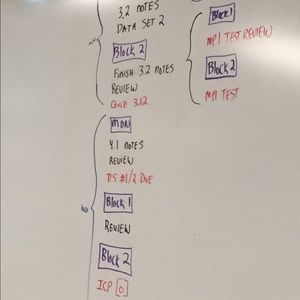 3.2 NOTES
DATA SET 2
Block 2
FINISH 3.2 NOTES
REVIEW
QUIZ 3.1/2
MON
4.1 NOTES
REVIEW
DS #1/2 DUE
Block 1
REVIEW
Block 2
ICP [0]
Block 1
MP1 TEST REVIEW
Block 2
MP1 TEST